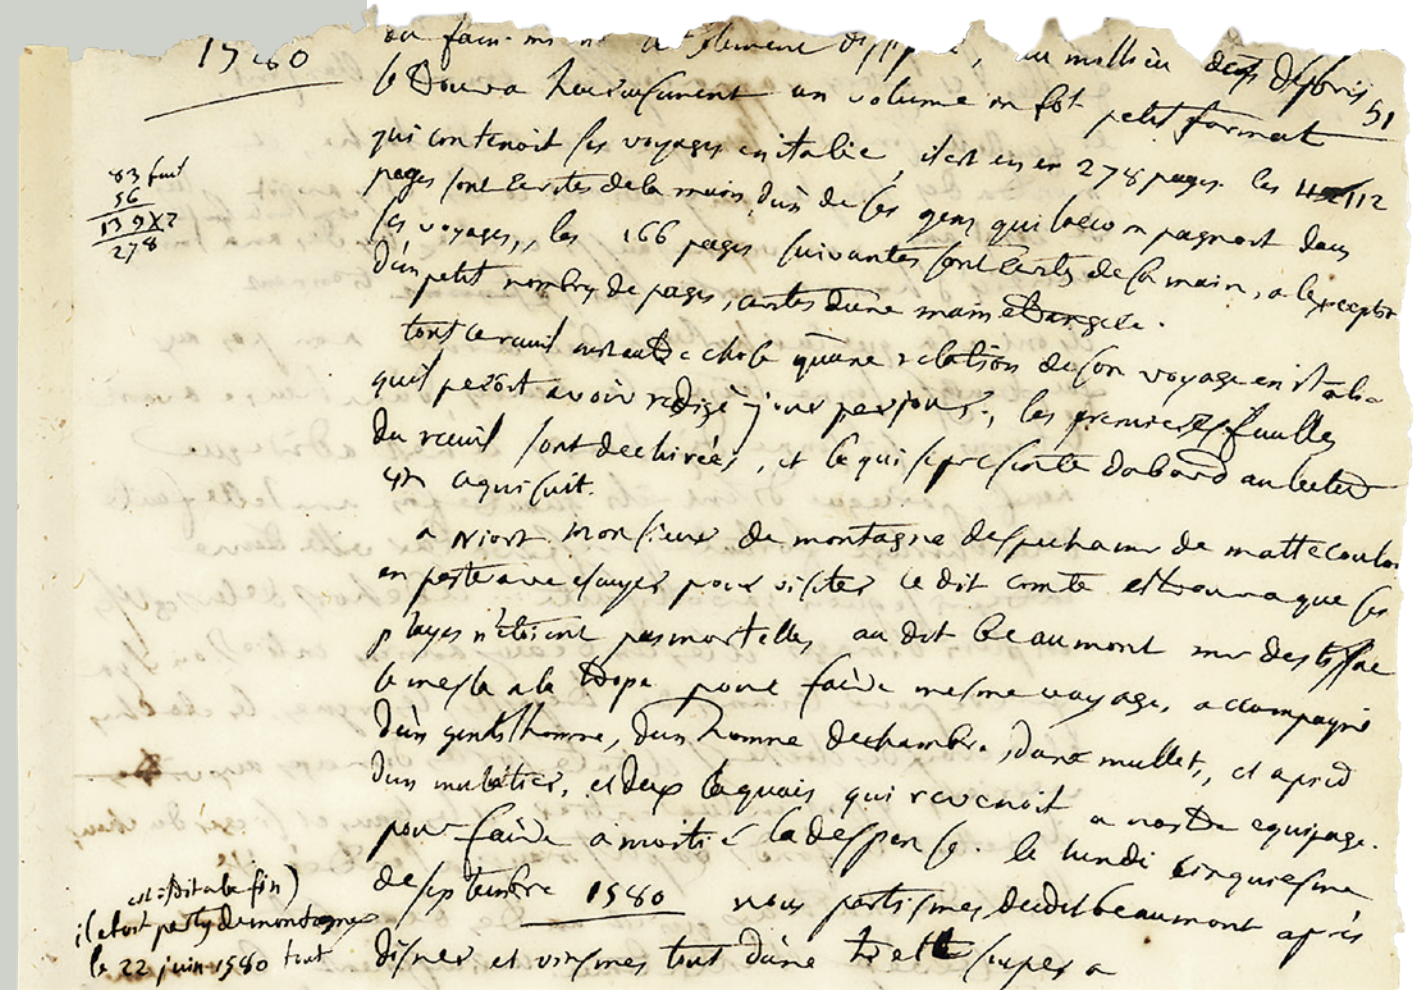 1580
au millieu des desbris 51
le trouva heureusement un volume in fol petit format
qui contenoit ses voyages en italie, il est en en 278 pages. les 112
83 fuil
56
139 x 2
278
pages sont ecrites de la main d'un de ses gens qui l'accompagnoit dans
ses voyages,, les 166 pages suivantes sont ecrites de sa main, a l'exception
d'un petit nombre de pages, ecrites d'une main etrangere.
tout ce receuil n'est autre chose qu'une relation de son voyage en italie
qu'il peroit avoir redigé jour par jour., les premieres feuilles
du receuil sont dechirées, et ce qui se presente d'abord au lecteur
est ce qui suit.
a monsieur de montagne despecha mr de mattecoulon
en poste avec escuyer pour visiter ce dit comte et trouva que ses
playes n'etoient pas mortelles, au dit beaumont mr destissac
se mesla a la trope pour faire mesme voyage, accompagné
d'un gentilhomme, d'un homme de chambre, d'une mullet,, et a pied
d'un muletier, et deux laquais qui revenoit a nostre equipage.
pour faire a moitié la despense. le lundi cinquiesme
de septembre 1580 nous partismes dudit beaumont après
disner et vinsmes tout d'une trette souper a
est dit a la fin)
il etoit party de montagne
le 22 juin 1580